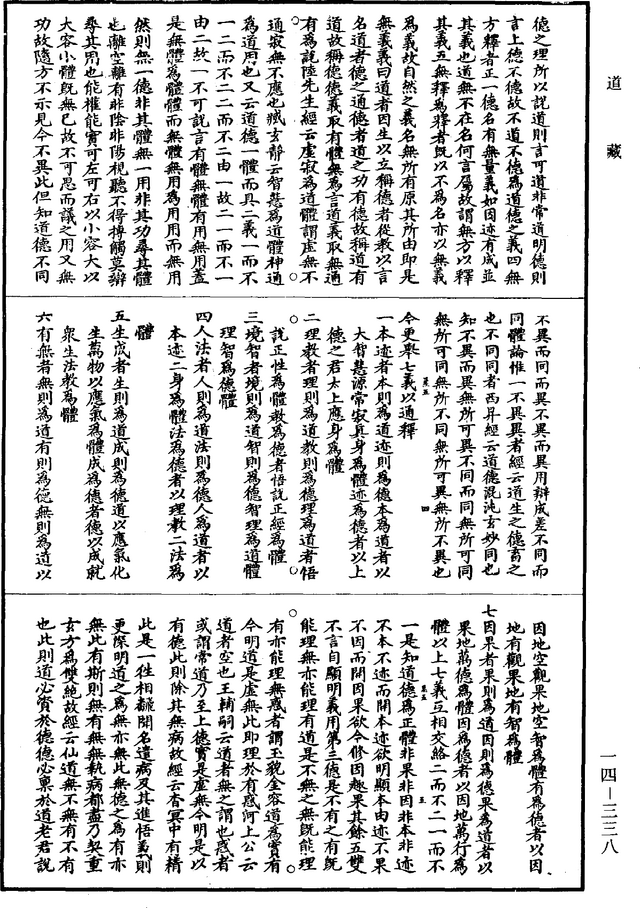 道藏
德之理所以說道則言可道非常道明德則
言上德不德故不道不德為道德之義四無
方釋者正一德名有無量義如因迹有成並
其義也道無不在名何言屬故謂無方以釋
其義五無釋為釋者既以不為名亦以無義
為義故自然之義名無所有原其所由即是
無義義曰道者因生以立稱德者從教以言
名道者德之通德者道之功有德故稱道有
道故稱德德義取有體無為言道義取無通
有為說陸先生經云虛寂為道體謂虛無不
通寂無不應也臧玄靜云智慧為道體神通
為道用也又云道德一體而具二義一而不
一二而不二二而不二由一故二一而不一
由二故一不可說言有體無體有用無用蓋
是無體為體體而無體無用為用用而無用
然則無一德非其體無一用非其功尋其體
也離空離有非陰非陽視聽不得摶觸莫辯
尋其用也能權能實可左可右以小容大以
大容小體既無已故不可思而議之用又無
功故隨方不示見今不異此但知道德不同
不異而同而異不異而異用辯成差不同而
同體論惟一不異異者經云道生之德畜之
也不同同者西昇經云道德混沌玄妙同也
知不異而異無所可異不同而同無所可同
無所可同無所不同無所可異無所不異也
今更舉七義以通釋
一本迹者本則為道迹則為德本為道者以
大智慧源常寂真身為體迹為德者以上
德之君太上應身為體
二理教者理則為道教則為德理為道者悟
說正性為體教為德者悟說正經為體
三境智者境則為道智則為德智理為道體
理智為德體
四人法者人則為道法則為德人為道者以
本迹二身為體法為德者以理教二法為
體
五生成者生則為道成則為德道以應氣化
生萬物以應氣為體成為德者德以成就
眾生法教為體
六有無者無則為道有則為德無則為道以
因地空觀果地空智為體有為德者以因
地有觀果地有智為體
七因果者果則為道因則為德果為道者以
果地萬德為體因為德者以因地萬行為
體以上七義互相交絡二而不二一而不
一是知道德為正體非果非因非本非迹
不本不迹而開本迹欲明顯本由迹不果
不因而開因果欲令修因趣果其餘五雙
不言自顯明義用第三德是不有之有既
能理無亦能理有道是不無之無既能理
有亦能理無惑者謂玉貌金容道為實有
今明道是虛無此即理於有惑河上公云
道者空也王輔嗣云道者無之謂也惑者
或謂常道乃至上德實是虛無今明是以
有德此則除其無病故經云杳冥中有精
此是一往相翻開名遣病及其進悟義則
更深明道之為無亦無此無德之為有亦
無此有斯則無有無無執病都盡乃契重
玄方為雙絕故經云仙道無不無有不有
也此則道必資於德德必稟於道老君說
一四—三三八